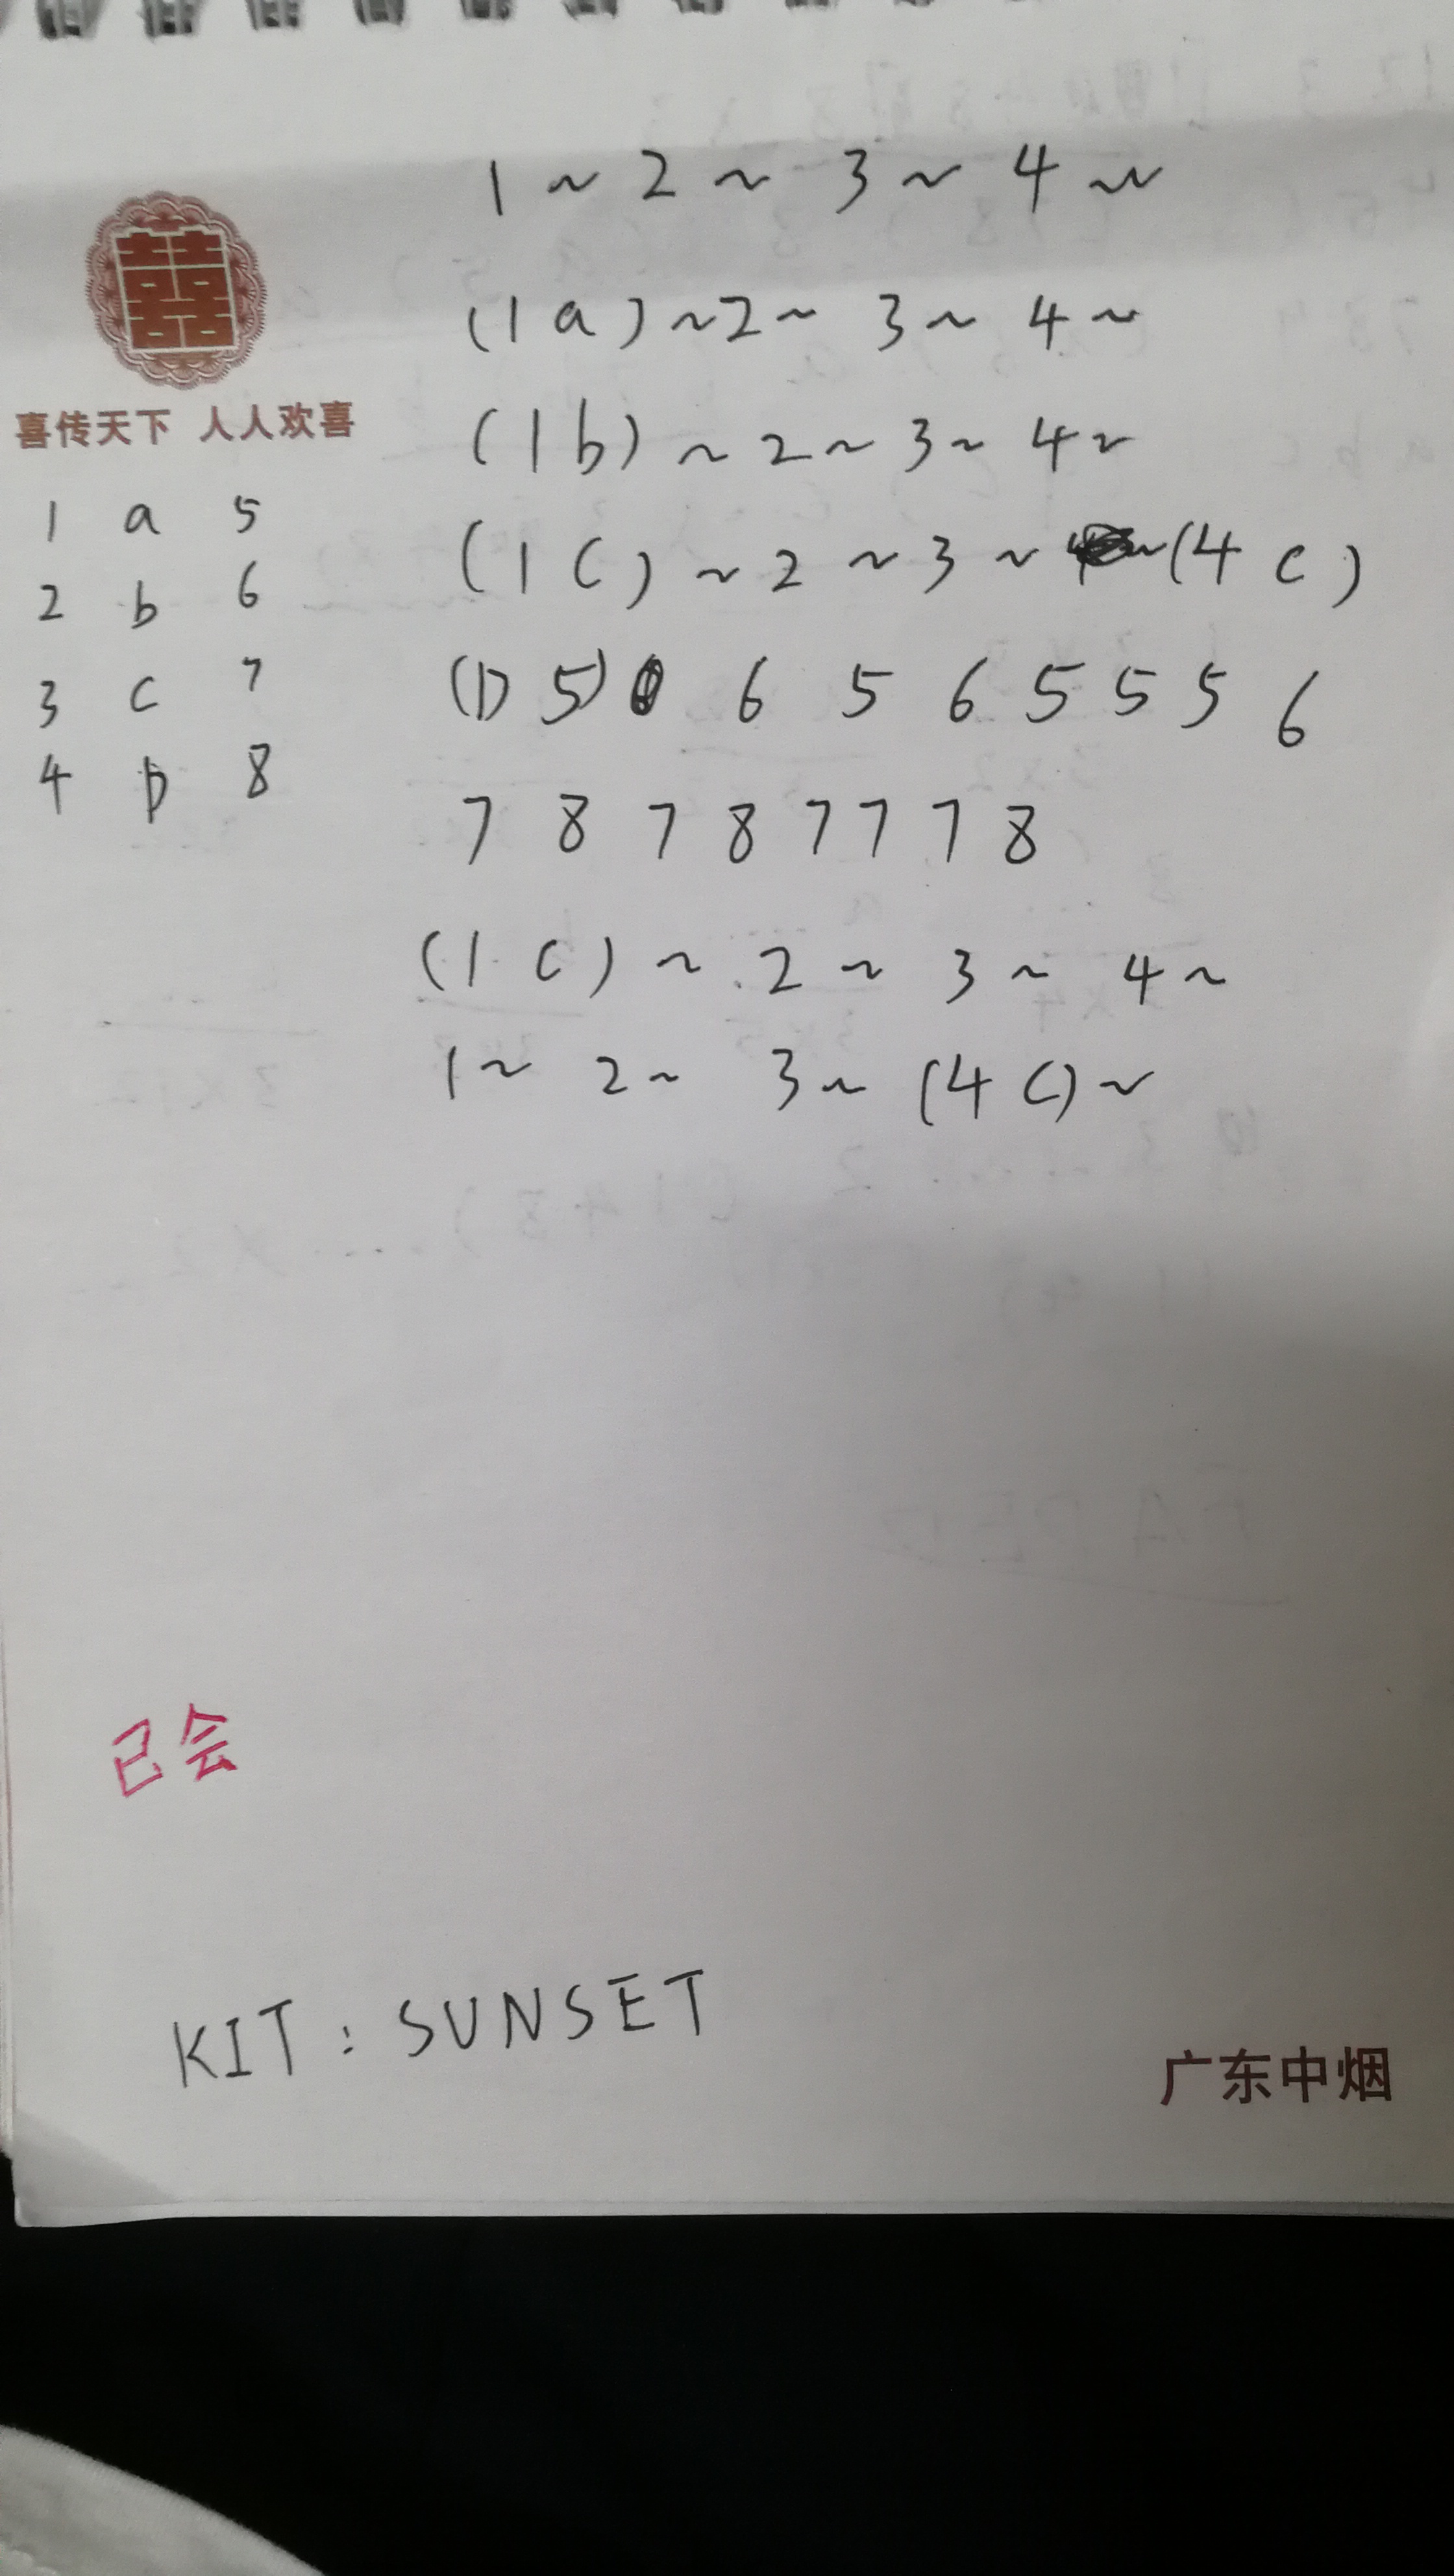 1 ~ 2 ~ 3 ~ 4 ~
(1 a) ~ 2 ~ 3 ~ 4 ~
喜传天下 人人欢喜
(1 b) ~ 2 ~ 3 ~ 4 ~
1 a 5
2 b 6
3 c 7
4 D 8
(1 C) ~ 2 ~ 3 ~ ~ (4 c)
(D 5) 6 5 6 5 5 5 6
7 8 7 8 7 7 7 8
(1 c) ~ 2 ~ 3 ~ 4 ~
1 ~ 2 ~ 3 ~ (4 C) ~
已会
KIT : SUNSET
广东中烟